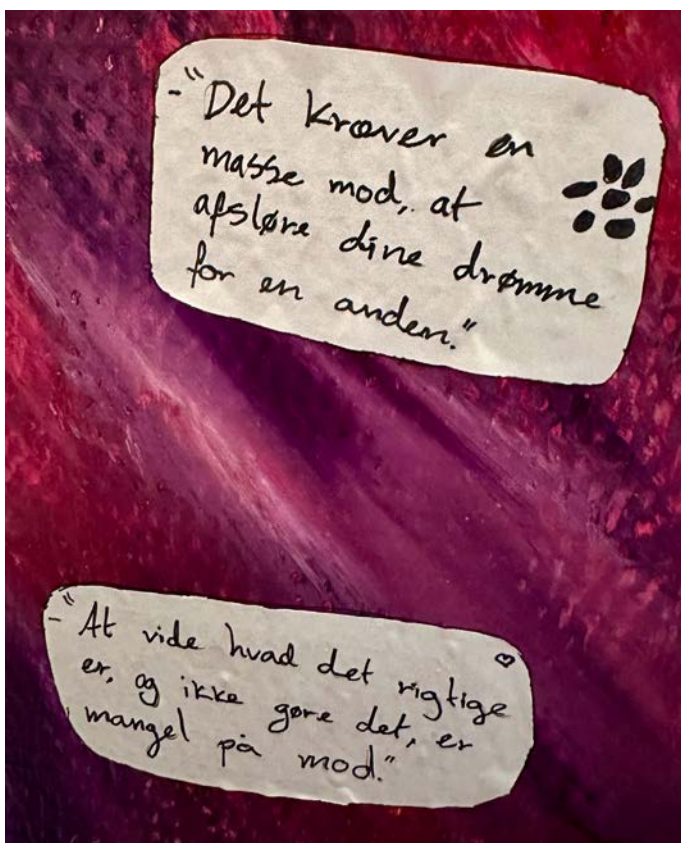 -"Det kræver en
masse mod, at
afsløre dine drømme
for en anden."
-"At vide hvad det rigtige
er, og ikke gøre det, er
mangel på mod."